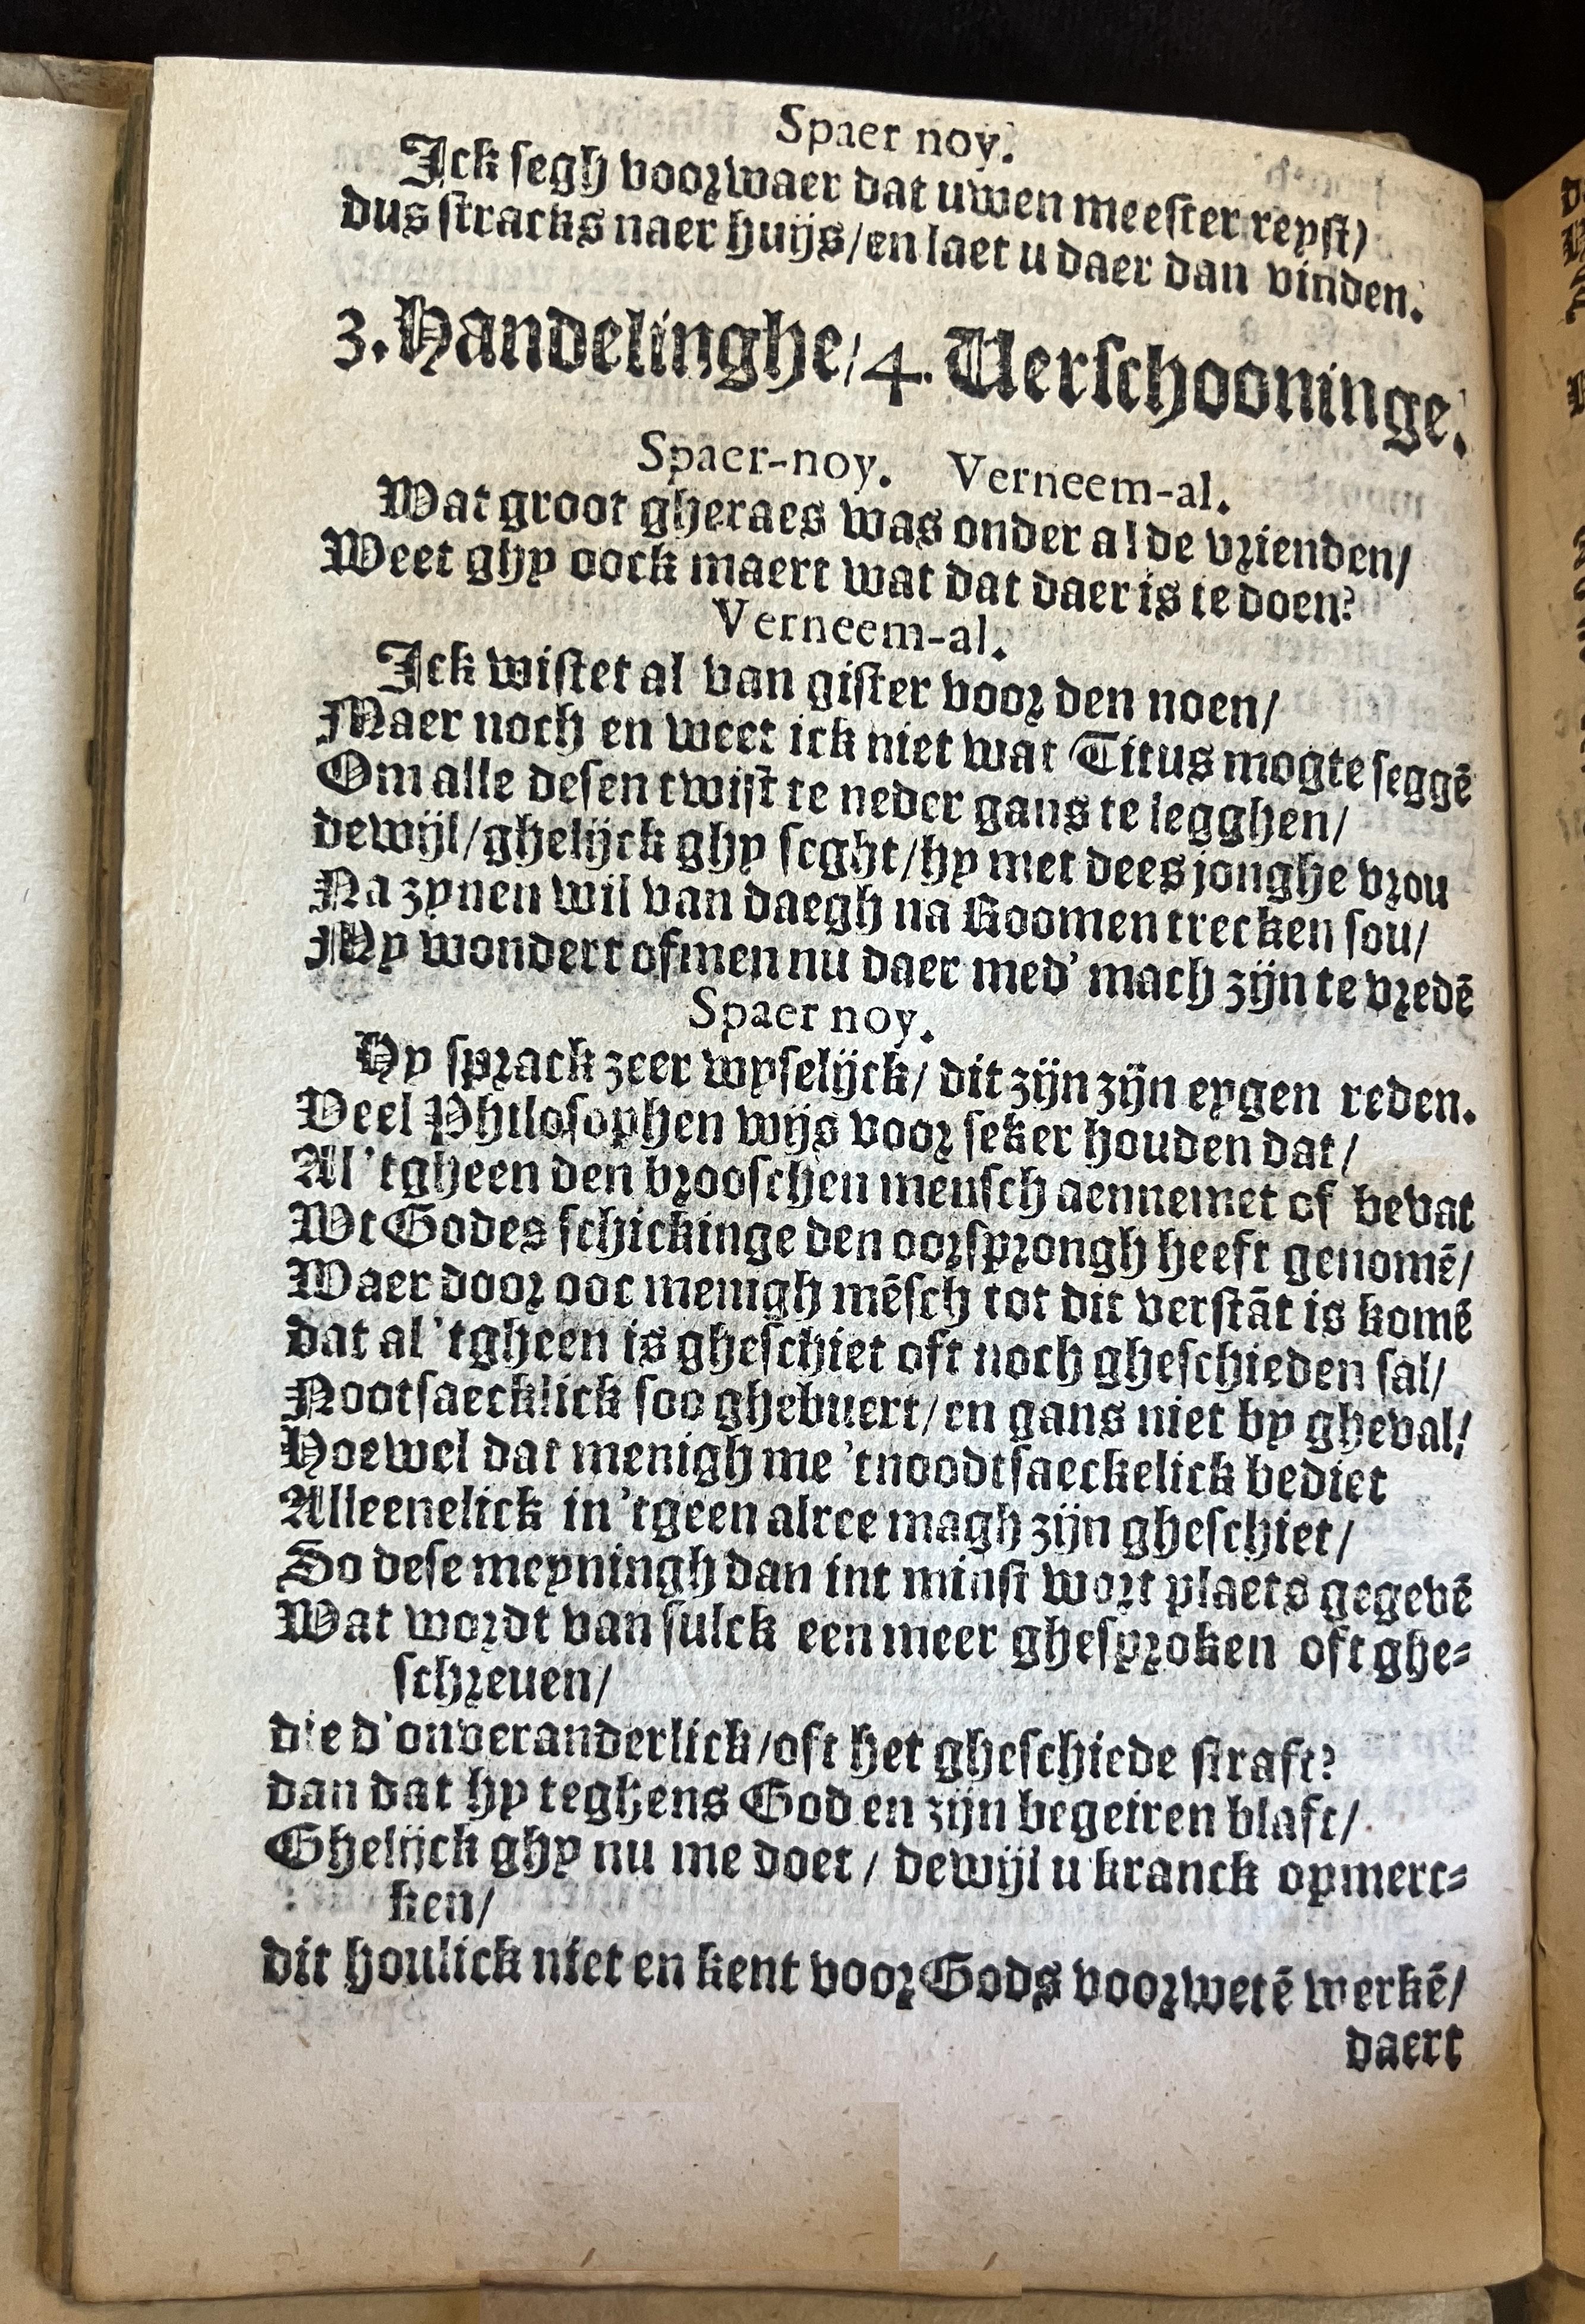 Spaer noy.
Ick segh voorwaer dat uwen meester reyst/
dus stracks naer huijs/en laet u daer dan vinden.
3. Handelinghe/4. Verschooninge.
Spaer-noy. Verneem-al.
Wat groot gheraes was onder al de vrienden/
Weet ghy oock maert wat dat daer is te doen?
Verneem-al.
Ick wistet al van gister voor den noen/
Maer noch en weet ick niet wat Titus mogte seggē
Om alle desen twist te neder gans te legghen/
dewijl/ghelijck ghy seght/hy met dees jonghe vrou
Na zynen wil van daegh na Roomen trecken sou/
My wondert ofmen nu daer med' mach zijn te vredē
Spaer noy.
Hy sprack zeer wyselijck/ dit zijn zijn eygen reden.
Veel Philosophen wijs voor seker houden dat/
Al 'tgheen den brooschen mensch aennemet of bevat
Wt Godes schickinge den oorsprongh heeft genomē/
Waer door ooc menigh mēsch tot dit verstāt is komē
dat al 'tgheen is gheschiet oft noch gheschieden sal/
Nootsaecklick soo ghebuert/en gans niet by gheval/
Hoewel dat menigh me 'tnoodtsaeckelick bediet
Alleenelick in 'tgeen alree magh zijn gheschiet/
So dese meyningh dan int minst wort plaets gegevē
Wat wordt van sulck een meer ghesproken oft ghe-
schreuen/
die d'onveranderlick/oft het gheschiede straft?
dan dat hy teghens God en zijn begeiren blaft/
Ghelijck ghy nu me doet / dewijl u kranck opmerc-
ken/
dit houlick niet en kent voor Gods voorwetē werkē/
daert